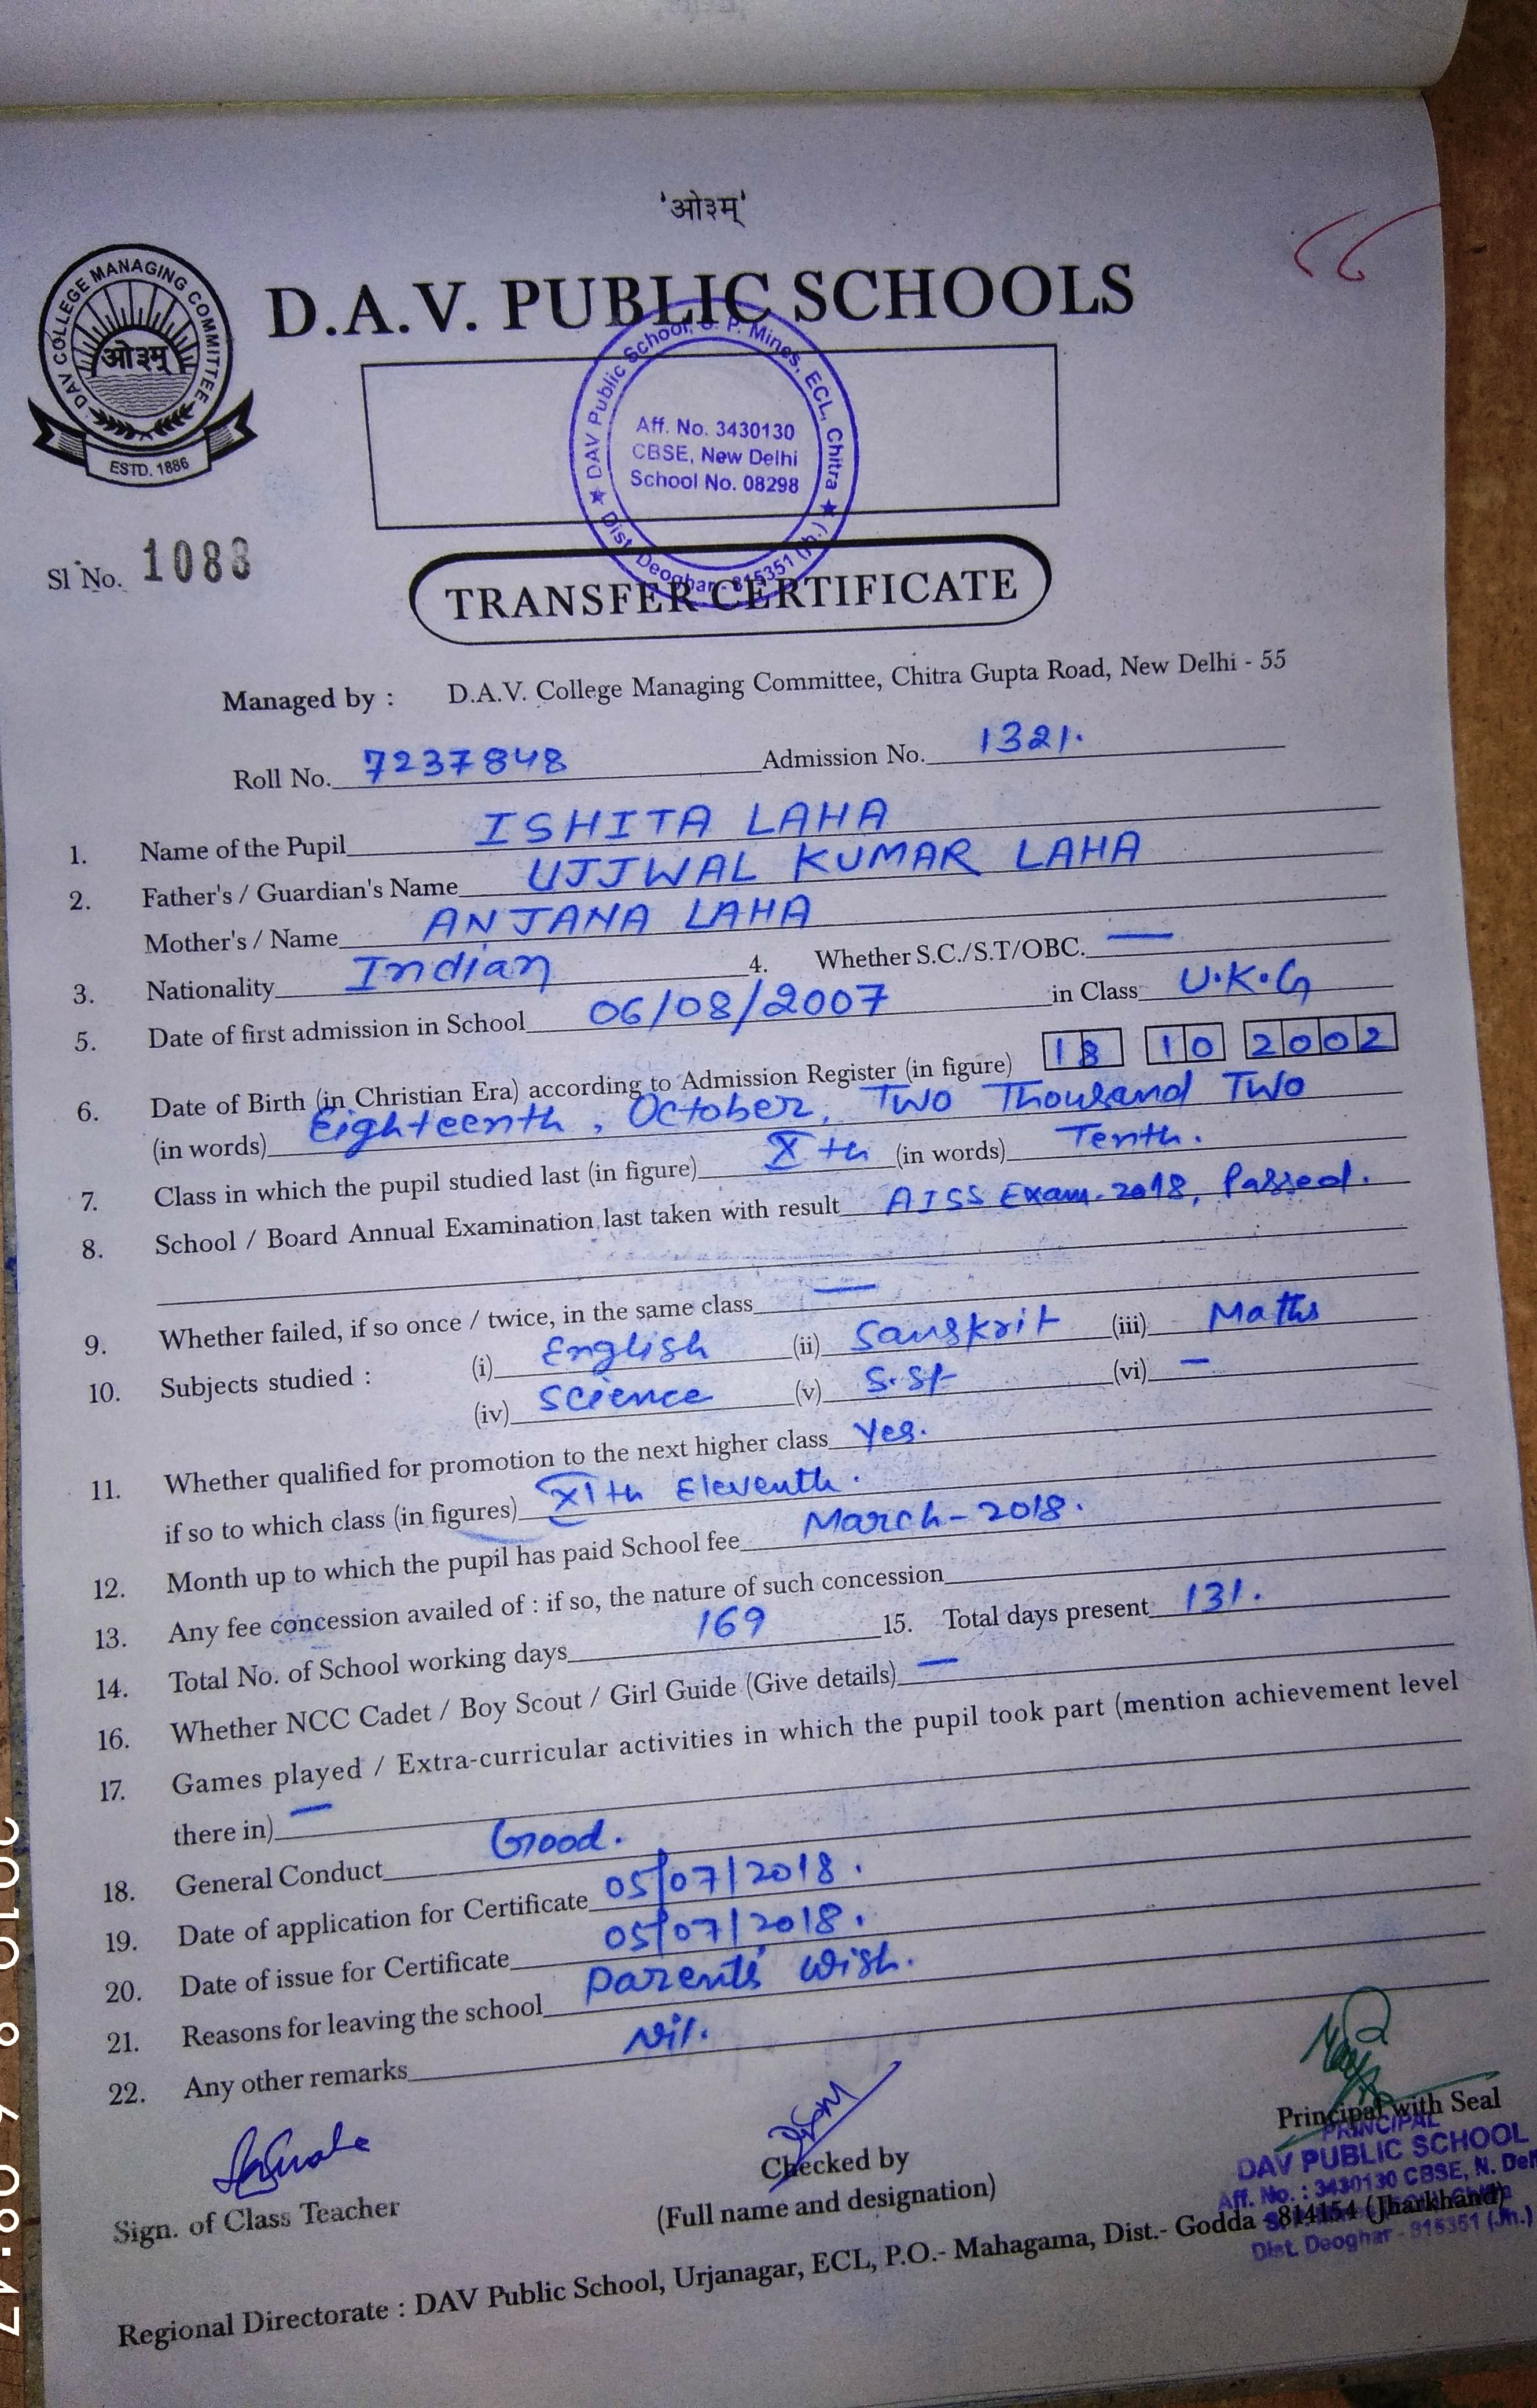 'ओ३म्'
DAV COLLEGE MANAGING COMMITTEE
ओ३म्
ESTD. 1886
D.A.V. PUBLIC SCHOOLS
DAV Public School, S. P. Mines, ECL, Chitra
Aff. No. 3430130
CBSE, New Delhi
School No. 08298
Dist. Deoghar - 815351 (Jh.)
Sl No. 1083
TRANSFER CERTIFICATE
Managed by : D.A.V. College Managing Committee, Chitra Gupta Road, New Delhi - 55
Roll No. 7237848 Admission No. 1321.
1. Name of the Pupil ISHITA LAHA
2. Father's / Guardian's Name UJJWAL KUMAR LAHA
Mother's / Name ANJANA LAHA
3. Nationality Indian 4. Whether S.C./S.T/OBC. —
5. Date of first admission in School 06/08/2007 in Class U.K.G
6. Date of Birth (in Christian Era) according to Admission Register (in figure) 18 10 2002
(in words) Eighteenth, October, Two Thousand Two
7. Class in which the pupil studied last (in figure) Xth (in words) Tenth.
8. School / Board Annual Examination last taken with result AISS Exam-2018, Passed.
9. Whether failed, if so once / twice, in the same class —
10. Subjects studied : (i) English (ii) Sanskrit (iii) Maths
(iv) Science (v) S.St (vi) —
11. Whether qualified for promotion to the next higher class Yes.
if so to which class (in figures) XIth Eleventh.
12. Month up to which the pupil has paid School fee March-2018.
13. Any fee concession availed of : if so, the nature of such concession
14. Total No. of School working days 169 15. Total days present 131.
16. Whether NCC Cadet / Boy Scout / Girl Guide (Give details) —
17. Games played / Extra-curricular activities in which the pupil took part (mention achievement level
there in) —
18. General Conduct Good.
19. Date of application for Certificate 05/07/2018.
20. Date of issue for Certificate 05/07/2018.
21. Reasons for leaving the school Parents' Wish.
22. Any other remarks Nil.
Sign. of Class Teacher
Checked by
(Full name and designation)
Principal with Seal
PRINCIPAL
DAV PUBLIC SCHOOL
Aff. No. : 3430130 CBSE, N. Del
Dist. Deoghar - 815351 (Jh.)
Regional Directorate : DAV Public School, Urjanagar, ECL, P.O.- Mahagama, Dist.- Godda - 814154 (Jharkhand)